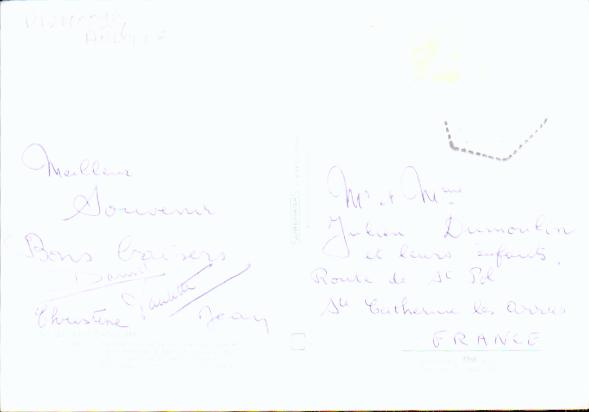 Meilleur
Souvenir
Bons baisers
Daniel
Christène Paulette Jean
Mr et Mme
Julien Dumoulin
et leurs enfants.
Route de St Pol
Ste Catherine les Arras
FRANCE